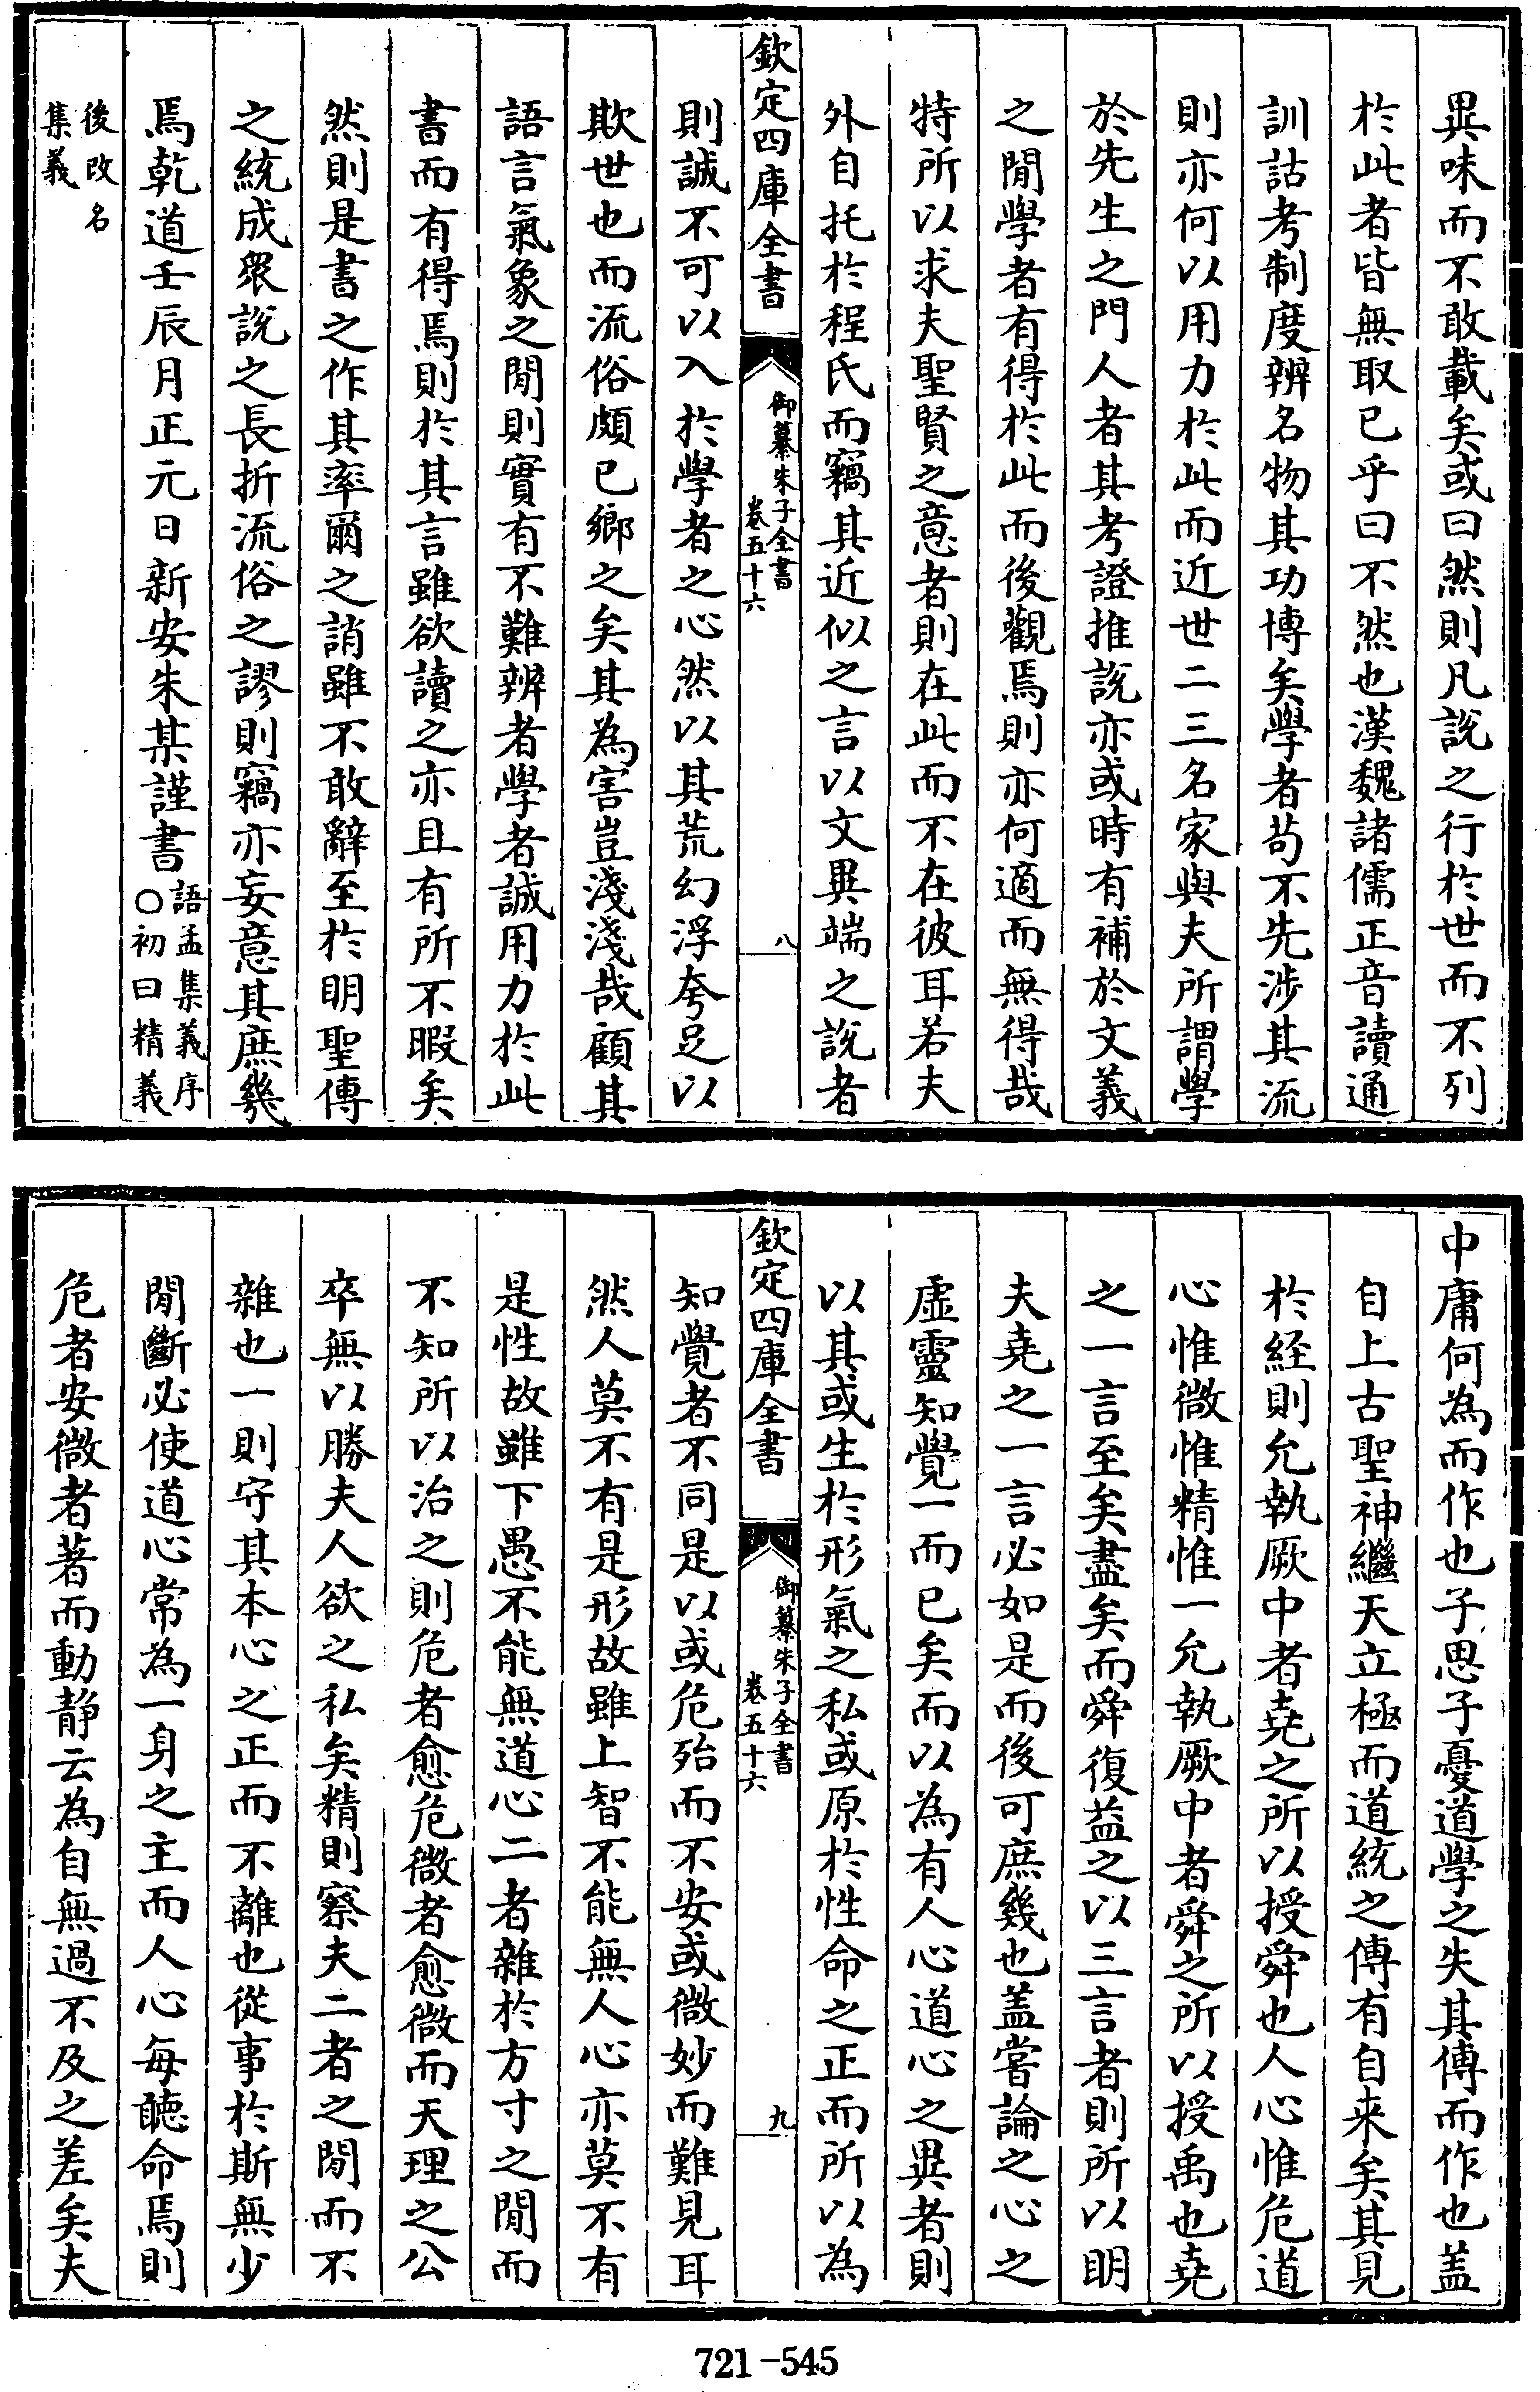 異味而不敢載矣或曰然則凡說之行於世而不列
於此者皆無取已乎曰不然也漢魏諸儒正音讀通
訓詁考制度辨名物其功博矣學者苟不先涉其流
則亦何以用力於此而近世二三名家與夫所謂學
於先生之門人者其考證推說亦或時有補於文義
之閒學者有得於此而後觀焉則亦何適而無得哉
特所以求夫聖賢之意者則在此而不在彼耳若夫
外自托於程氏而竊其近似之言以文異端之說者
欽定四庫全書
御纂朱子全書
卷五十六
八
則誠不可以入於學者之心然以其荒幻浮夸足以
欺世也而流俗頗已鄉之矣其為害豈淺淺哉顧其
語言氣象之閒則實有不難辨者學者誠用力於此
書而有得焉則於其言雖欲讀之亦且有所不暇矣
然則是書之作其率爾之誚雖不敢辭至於明聖傳
之統成眾說之長折流俗之謬則竊亦妄意其庶幾
焉乾道壬辰月正元日新安朱某謹書
語孟集義序
○初曰精義
後改名
集義
中庸何為而作也子思子憂道學之失其傳而作也盖
自上古聖神繼天立極而道統之傳有自来矣其見
於経則允執厥中者堯之所以授舜也人心惟危道
心惟微惟精惟一允執厥中者舜之所以授禹也堯
之一言至矣盡矣而舜復益之以三言者則所以明
夫堯之一言必如是而後可庶幾也盖嘗論之心之
虛靈知覺一而已矣而以為有人心道心之異者則
以其或生於形氣之私或原於性命之正而所以為
欽定四庫全書
御纂朱子全書
卷五十六
九
知覺者不同是以或危殆而不安或微妙而難見耳
然人莫不有是形故雖上智不能無人心亦莫不有
是性故雖下愚不能無道心二者雜於方寸之閒而
不知所以治之則危者愈危微者愈微而天理之公
卒無以勝夫人欲之私矣精則察夫二者之閒而不
雜也一則守其本心之正而不離也從事於斯無少
閒斷必使道心常為一身之主而人心每聽命焉則
危者安微者著而動静云為自無過不及之差矣夫
721-545